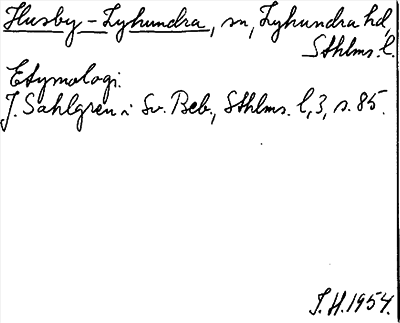 Husby-Lyhundra, sn, Lyhundra hd,
Sthlms. l.
Etymologi.
J. Sahlgren i Sv. Beb., Sthlms. l, 3, s. 85.
J. H. 1954.